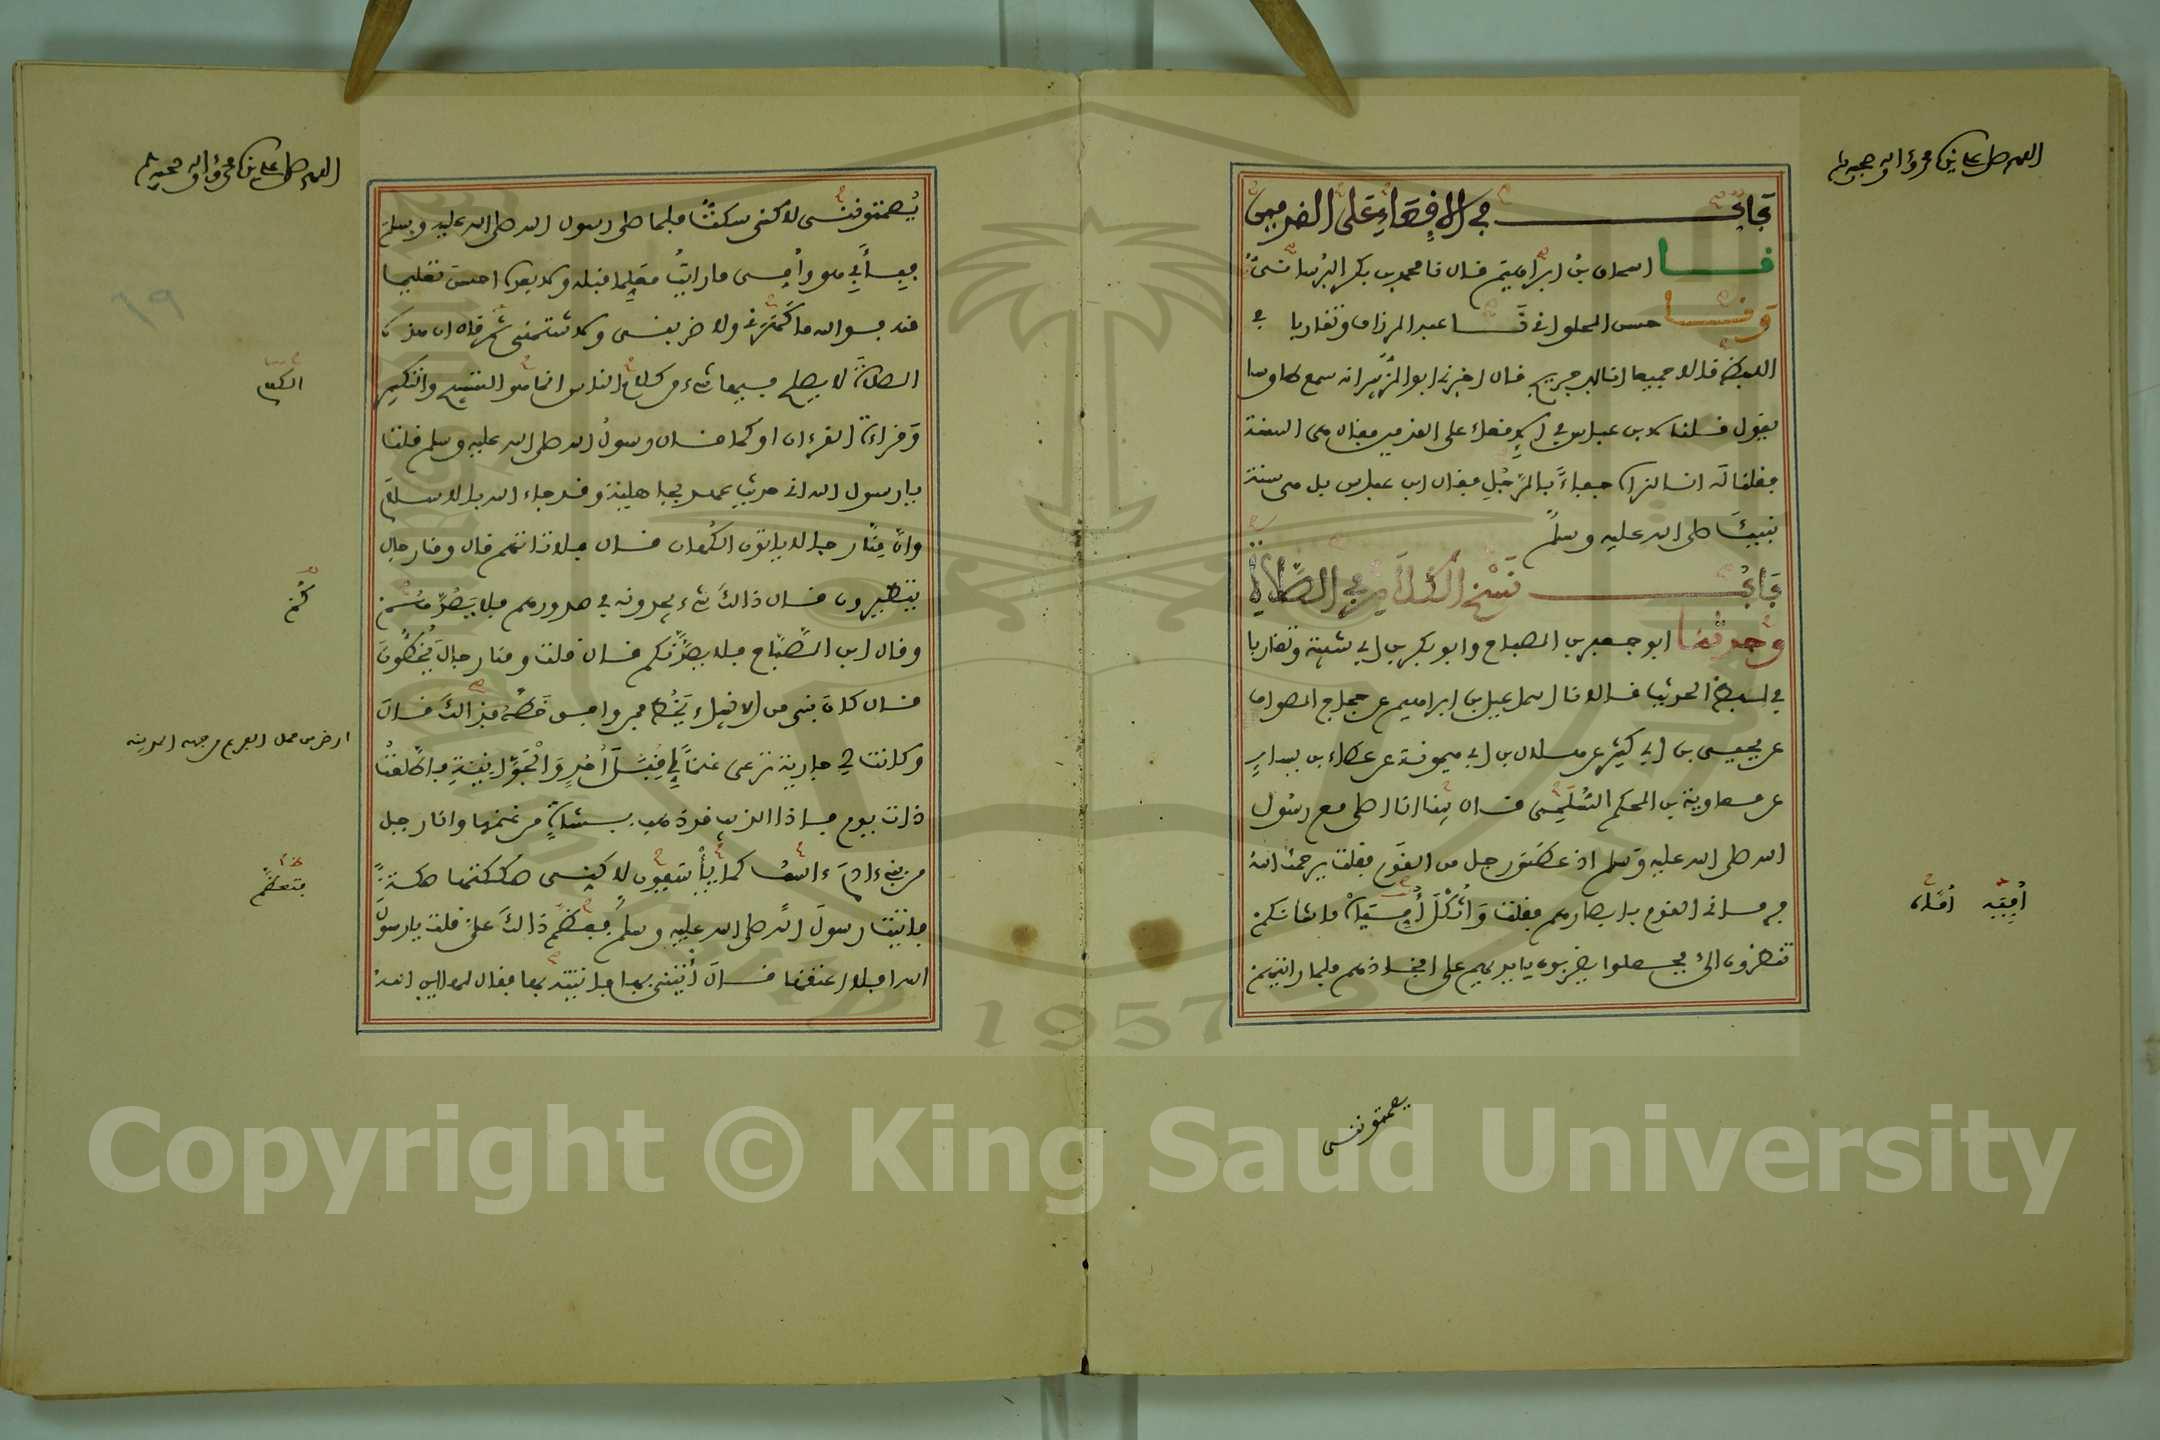 اللهم صل على سيدنا محمد وءاله وصحبه وسلم
بَابُ في الإقعاء على القدمين
نـا اسحاق بن ابراهيم قال نا محمد بن بكر البرسانيُّ
وَنـا حسن الحلواني نـا عبد الرزاق وتقاربا في
اللفظ قالا جميعا انا ابن جريج قال اخبرني ابو الزبير انه سمع طاوسا
يقول قلنا لابن عباس في الإقعاء على القدمين فقال هي السنة
فقلنا له انا لنراه جفاءً بالرَّجُلِ فقال ابن عباس بل هي سنة
نبيك صلى الله عليه وسلم
بَابُ نَسْخ الكلام في الصلاة
وحدثنا ابو جعفر بن الصباح وابو بكر بن ابي شيبة وتقاربا
في لفظ الحديث قالا نا اسماعيل بن ابراهيم عن حجاج الصواف
عن يحيى بن ابي كثير عن هلال بن ابي ميمونة عن عطاء بن يسارٍ
عن معاوية بن الحكم السُّلَمِي قال بينا انا اصلي مع رسول
الله صلى الله عليه وسلم اذ عطس رجل من القوم فقلت يرحمك الله
فرماني القوم بابصارهم فقلت وَاثُكْلَ أُمِّيَاهْ ما شأنكم
تنظرون الي فجعلوا يضربون بايديهم على افخاذهم فلما رايتهم
أُمِّيَه أمّاه
يصمتونني
اللهم صل على سيدنا محمد وءاله وصحبه وسلم
يُصمتونني لاكني سكتُّ فلما صلى رسول الله صلى الله عليه وسلم
فبِأَبِي هو وأمي ما رايتُ معلِّما قبله ولا بعده احسن تعليما
منه فوالله ما كَهَرَني ولا ضربني ولا شتمني ثم قال ان هذه
الصلاةَ لا يصلح فيها شيء من كلام الناس انما هو التسبيح والتكبير
وَقراءة القرءان او كما قال رسولُ الله صلى الله عليه وسلم قلت
يا رسول الله اني حديث عهد بجاهلية وقد جاء الله بالاسلام
وانّ مِنَّا رجالا ياتون الكُهان قال فلا تاتهم قال ومنا رجال
يتطيرون قال ذالك شيء يجدونه في صدورهم فلا يَصُدَّنَّهُمْ
وقال ابن الصَّبَّاح فلا يصدَّنَّكم قال قلت ومنا رجال يَخُطُّونَ
قال كان نبي من الانبياء يَخُط فمن وافق خَطَّهُ فذالكَ قال
وكانت لي جارية ترعى غنمًا لي قِبَلَ أُحُدٍ وَالْجَوَّانِيَّةِ فاطَّلَعْتُ
ذات يوم فاذا الذيب قد ذهب بشاةٍ من غنمها وانا رجل
من بني ءادم ءاسَفُ كما يَأْسَفُون لاكني صككتها صكة
فاتيت رسول الله صلى الله عليه وسلم فعظّم ذالكَ عليّ قلت يا رسول
الله افلا اعتقها قال أْتِنِي بها فاتيته بها فقال لها اين الله
الكلام
كُمْ
ارض من عمل الفرع من جهة المدينة
فتعظّم
٦٩
Copyright © King Saud University
1957